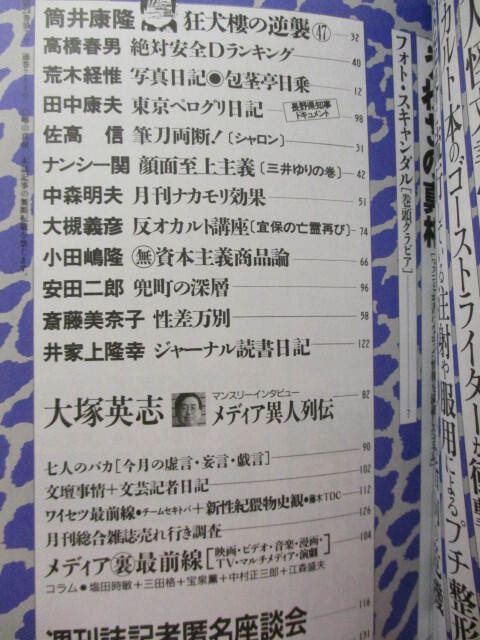 筒井康隆 連載 狂犬樓の逆襲㊼ 32
高橋春男 絶対安全Dランキング 40
荒木経惟 写真日記◉包茎亭日乗
田中康夫 東京ペログリ日記 長野県知事ドキュメント 98
佐高 信 筆刀両断!〔シャロン〕 31
ナンシー関 顔面至上主義〔三井ゆりの巻〕 42
中森明夫 月刊ナカモリ効果 51
大槻義彦 反オカルト講座〔宜保の亡霊再び〕 74
小田嶋隆 ㊍資本主義商品論 66
安田二郎 兜町の深層 96
斎藤美奈子 性差万別 58
井家上隆幸 ジャーナル読書日記 122
大塚英志 マンスリーインタビュー メディア異人列伝 82
七人のバカ[今月の虚言・妄言・戯言] 90
文壇事情+文芸記者日記 102
ワイセツ最前線●チームセキトバ+新性紀猥物史観●藤木TDC 112
月刊総合雑誌売れ行き調査 126
メディア裏最前線[映画・ビデオ・音楽・漫画・TV・マルチメディア・演劇] 104
コラム・塩田時敏+三田格+宝泉薫+中村正三郎+江森盛夫
週刊誌記者匿名座談会 116
131
フォト・スキャンダル[巻頭グラビア] 7
の真相
カルト本の"ゴーストライター"が
注射や服用によるプチ整形